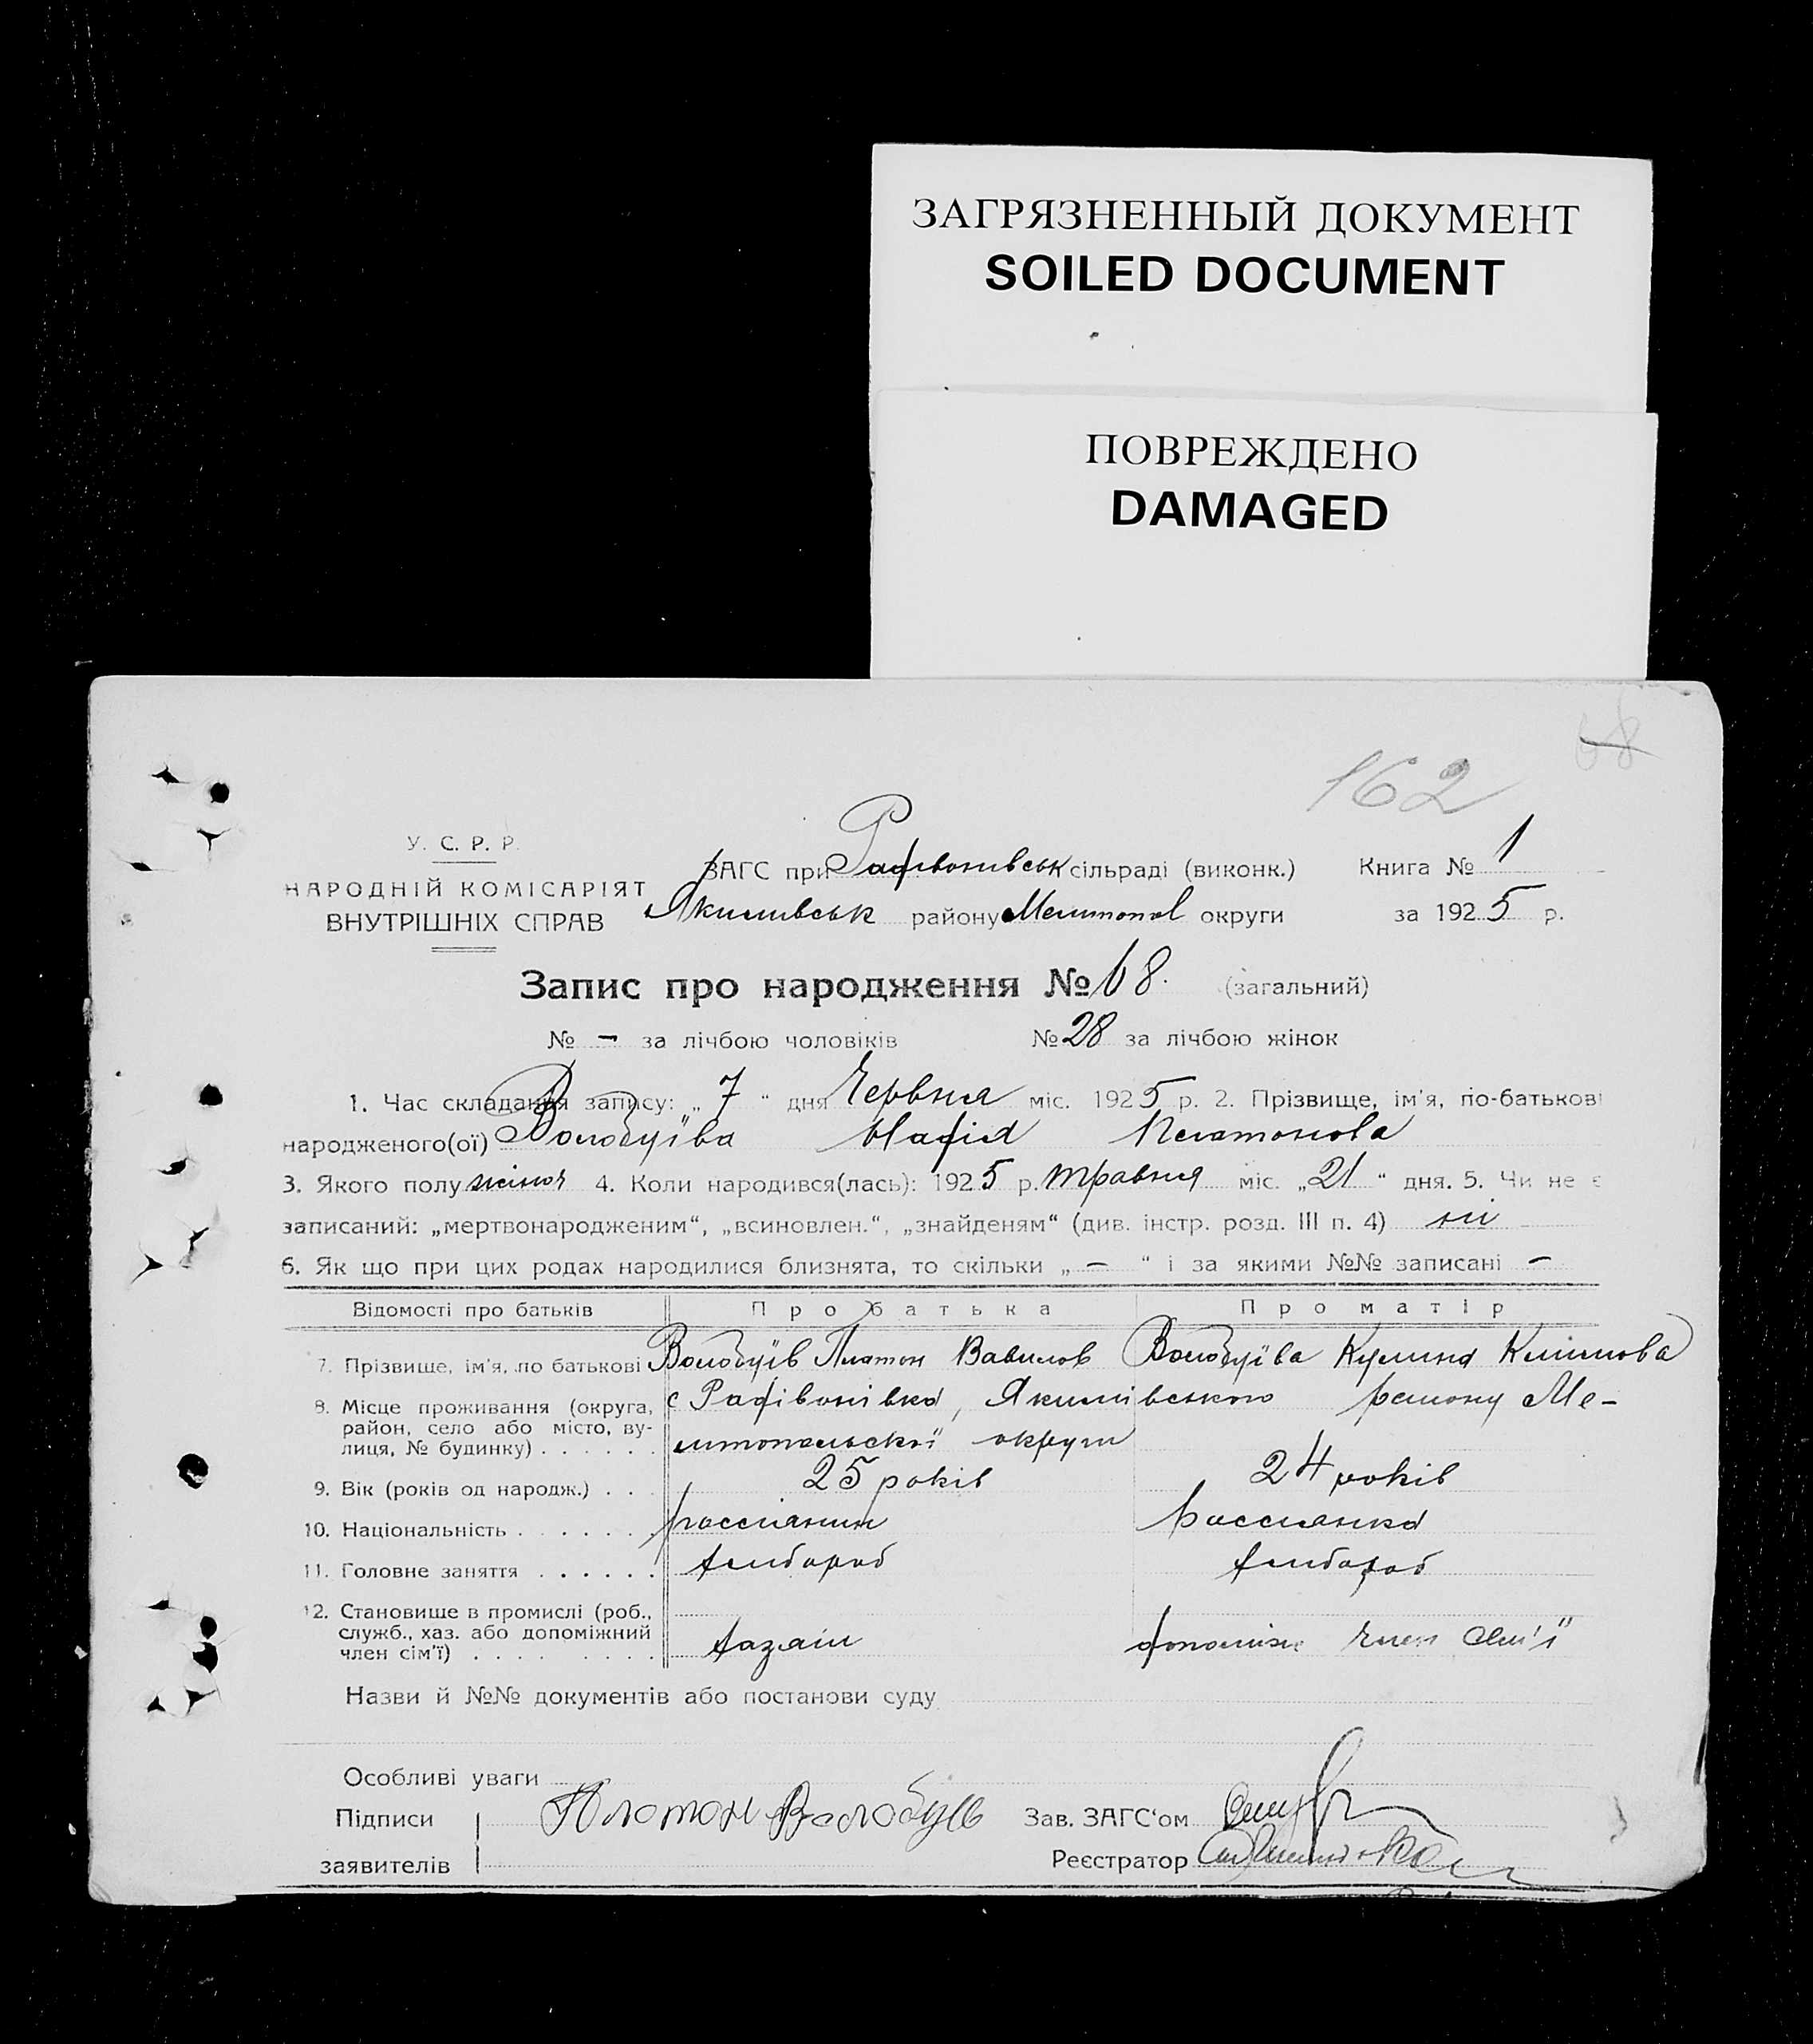 ЗАГРЯЗНЕННЫЙ ДОКУМЕНТ
SOILED DOCUMENT
ПОВРЕЖДЕНО
DAMAGED
68
162
У. С. Р. Р.
НАРОДНІЙ КОМІСАРІЯТ
ВНУТРІШНІХ СПРАВ
ЗАГС при Радівонивськ сільраді (виконк.) Книга № 1
Якимивськ району Мелитопол округи за 1925 р.
Запис про народження № 68. (загальний)
№ – за лічбою чоловіків № 28 за лічбою жінок
1. Час складання запису: „ 7 “ дня Червня міс. 1925 р. 2. Прізвище, ім'я, по-батькові
народженого(ої) Волобуїва Надія Платонова
3. Якого полу жіноч 4. Коли народився(лась): 1925 р. травня міс. „21“ дня. 5. Чи не є
записаний: „мертвонародженим“, „всиновлен.“, „знайденям“ (див. інстр. розд. III п. 4) ни
6. Як що при цих родах народилися близнята, то скільки „ – “ і за якими №№ записані –
Відомості про батьків Про батька Про матір
7. Прізвище, ім'я, по батькові Волобуїв Платон Вавилов Волобуїва Кулина Климова
8. Місце проживання (округа, район, село або місто, вулиця, № будинку) с Радівонівка, Якимівського району Ме-
литопольскої округи
9. Вік (років од народж.) 25 років 24 років
10. Національність россіянин россиянка
11. Головне заняття хлибороб хлибороб
12. Становище в промислі (роб., служб., хаз. або допоміжний член сім'ї) хазаін допоміжн член сим'ї
Назви й №№ документів або постанови суду
Особливі уваги
Підписи Платон Волобуїв Зав. ЗАГС'ом
заявителів Реєстратор